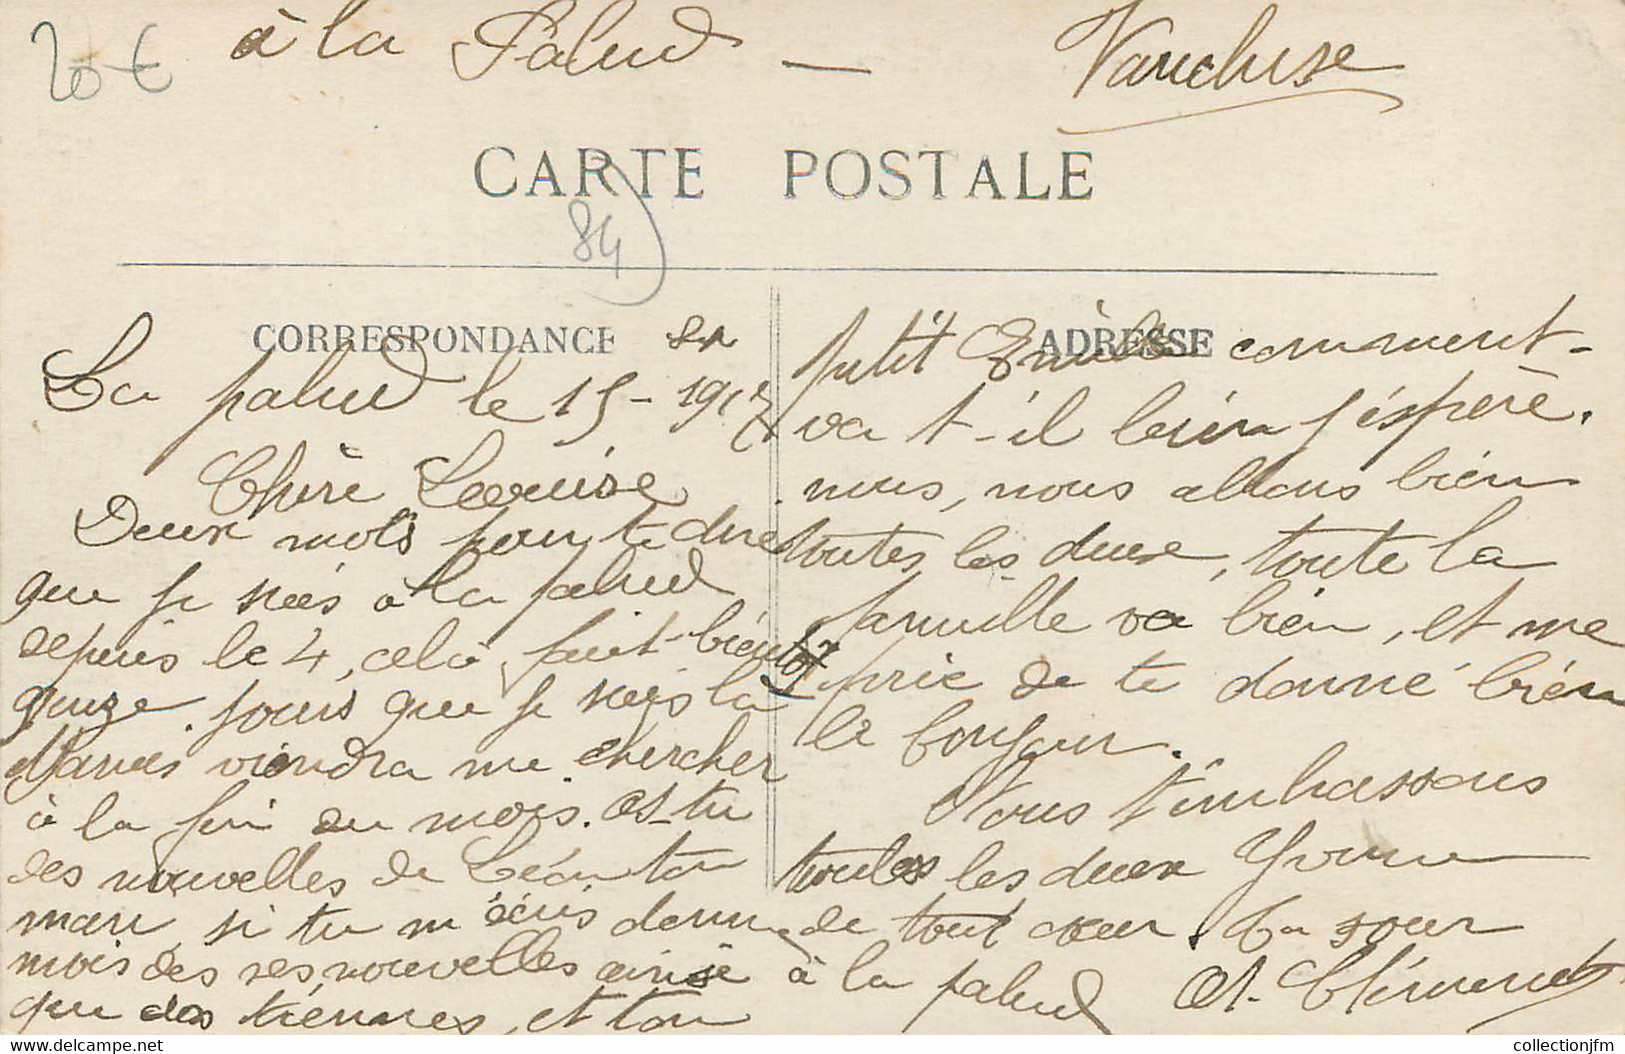 20 €
à la Palud — Vaucluse
CARTE POSTALE
84
CORRESPONDANCE
ADRESSE
La palud le 15 - 1917
Chère Louise
Deux mots pour te dire
que je suis à la palud
depuis le 4, cela fait bientôt
quinze jours que je suis la
Marius viendra me chercher
à la fin du mois. As-tu
des nouvelles de Léon ton
mari, si tu m'écris donne
mois des ses nouvelles ainsie
que des tiennes, et ton
petit Emile comment-
va t-il bien j'éspère.
nous, nous allons bien
toutes les deux, toute la
famille va bien, et me
prie de te donné bien
le bonjour.
Nous t'embrassons
toutes les deux Yvonne
de tout cœur. ta sœur
à la palud A. Clément
www.delcampe.net
collectionjfm